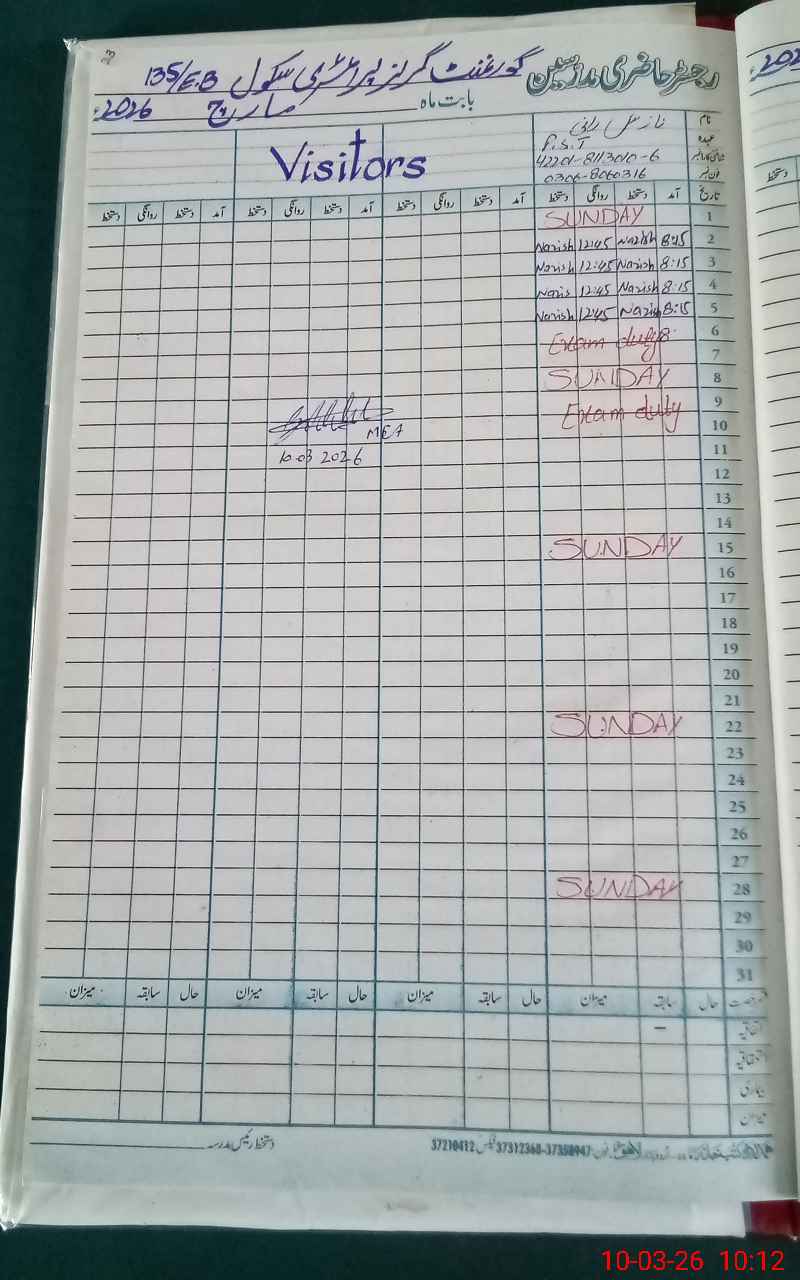 رجسٹر حاضری مدرسین گورنمنٹ گرلز پرائمری سکول 135/E.B
بابت ماہ مارچ 2026ء
Visitors
نام نازش رانی
عہدہ P.S.T
42201-8113010-6
0306-8060316
تاریخ آمد دستخط روانگی دستخط آمد دستخط روانگی دستخط آمد دستخط روانگی دستخط آمد دستخط روانگی دستخط
1 SUNDAY
2 8:15 Nazish 12:45 Nazish
3 8:15 Nazish 12:45 Nazish
4 8:15 Nazish 12:45 Nazis
5 8:15 Nazish 12:45 Nazish
6
Exam duty
7
8 SUNDAY
9 Exam duty
10
MEA
11
10 03 2026
12
13
14
15 SUNDAY
16
17
18
19
20
21
22 SUNDAY
23
24
25
26
27
28 SUNDAY
29
30
31
رخصت حال سابقہ میزان حال سابقہ میزان حال سابقہ میزان حال سابقہ میزان
اتفاقیہ –
استحقاقیہ
بیماری
میزان
دستخط رئیس مدرسہ
فون 37312360-37350947 فیکس 37210412
10-03-26 10:12